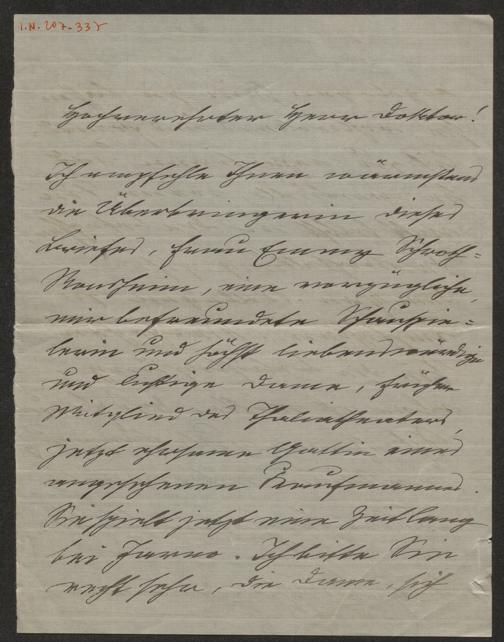 I.N. 207.337
Hochverehrter Herr Doktor!
Ich empfehle Ihnen wärmstens
die Überbringerin dieses
Briefes, Frau Emmy Schroth-
eine vorzügliche,
mir befreundete Schauspie-
lerin und höchst liebenswürdige
und lustige Dame, früher
Mitglied des Thaliatheaters,
jetzt ehrsame Gattin eines
angesehenen Kaufmannes.
Sie spielt jetzt eine Zeit lang
bei Jarno. Ich bitte Sie
recht sehr, die Dame, sich